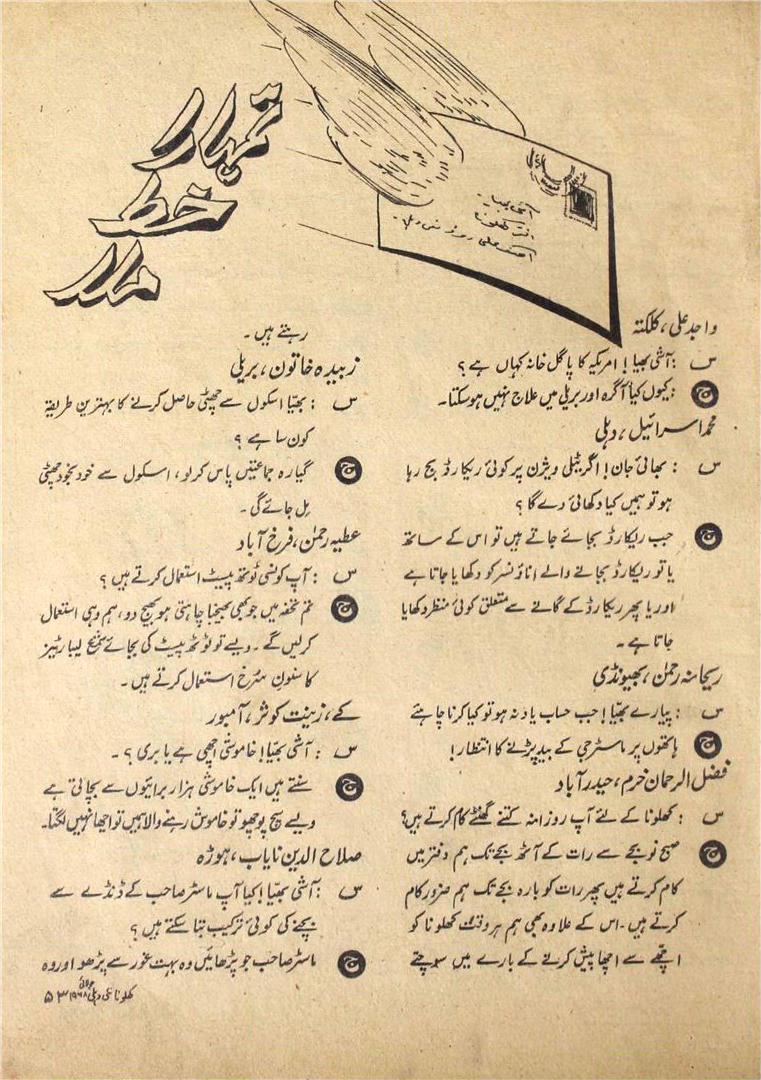 تمہارا
خط
ملا
آشی بھیا۔
انت کھلونا
آصف علی روڈ نئی دہلی۔
واجد علی، کلکتہ
س : آشی بھیا! امریکہ کا پاگل خانہ کہاں ہے؟
ج : کیوں کیا آگرہ اور بریلی میں علاج نہیں ہو سکتا۔
محمد اسرائیل، دہلی
س : بھائی جان! اگر ٹیلی ویژن پر کوئی ریکارڈ بج رہا
ہو تو ہمیں کیا دکھائی دے گا؟
ج جب ریکارڈ بجائے جاتے ہیں تو اس کے ساتھ
یا تو ریکارڈ بجانے والے اناؤنسر کو دکھایا جاتا ہے
اور یا پھر ریکارڈ کے گانے سے متعلق کوئی منظر دکھایا
جاتا ہے۔
ریحانہ رحمٰن، بھیونڈی
س : پیارے بھیّا! جب حساب یاد نہ ہو تو کیا کرنا چاہئے
ج ہاتھوں پر ماسٹر جی کے بید پڑنے کا انتظار!
فضل الرحمان خرم، حیدرآباد
س : کھلونا کے لئے آپ روزانہ کتنے گھنٹے کام کرتے ہیں؟
ج صبح نو بجے سے رات کے آٹھ بجے تک ہم دفتر میں
کام کرتے ہیں پھر رات کو بارہ بجے تک ہم ضرور کام
کرتے ہیں۔ اس کے علاوہ بھی ہم ہر وقت کھلونا کو
اچھے سے اچھا پیش کرنے کے بارے میں سوچتے
رہتے ہیں۔
زبیدہ خاتون، بریلی
س : بھیّا اسکول سے چھٹی حاصل کرنے کا بہترین طریقہ
کون سا ہے؟
ج گیارہ جماعتیں پاس کر لو، اسکول سے خود بخود چھٹی
مل جائے گی۔
عطیہ رحمٰن، فرخ آباد
س : آپ کونسی ٹوتھ پیسٹ استعمال کرتے ہیں؟
ج تم تحفہ میں جو بھی بھیجنا چاہتی ہو بھیج دو، ہم وہی استعمال
کر لیں گے۔ ویسے تو ٹوتھ پیسٹ کی بجائے شمع لیبارٹریز
کا سنون سُرخ استعمال کرتے ہیں۔
کے، زینت کوثر، آمبور
س : آشی بھیّا! خاموشی اچھی ہے یا بری؟۔
ج سنتے ہیں ایک خاموشی ہزار برائیوں سے بچاتی ہے
ویسے سچ پوچھو تو خاموش رہنے والا ہمیں تو اچھا نہیں لگتا۔
صلاح الدین نایاب، ہوڑہ
س : آشی بھیّا! کیا آپ ماسٹر صاحب کے ڈنڈے سے
بچنے کی کوئی ترکیب بتا سکتے ہیں؟
ج ماسٹر صاحب جو پڑھائیں وہ بہت غور سے پڑھو اور وہ
کھلونا نئی دہلی جولائی ۱۹۶۸ ۵۳